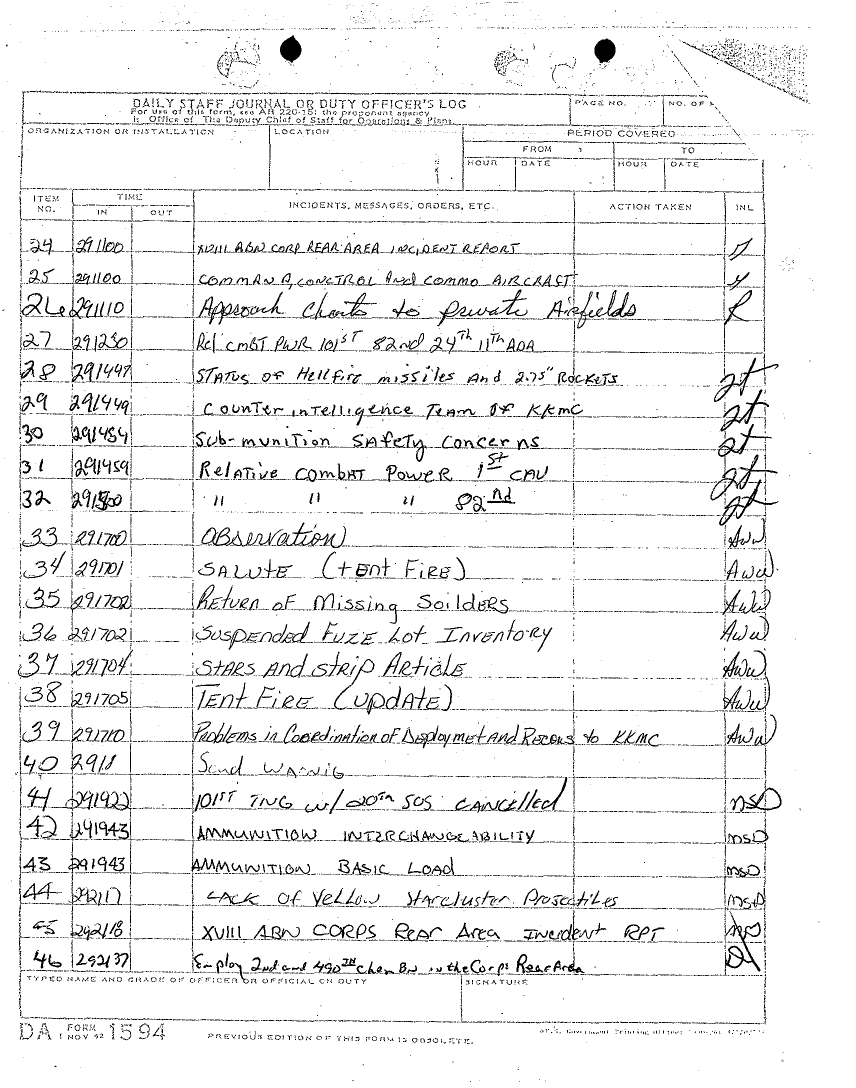 DAILY STAFF JOURNAL OR DUTY OFFICER'S LOG
For use of this form, see AR 220-15; the proponent agency
is Office of The Deputy Chief of Staff for Operations & Plans.
PAGE NO.
NO. OF
ORGANIZATION OR INSTALLATION
LOCATION
PERIOD COVERED
FROM
TO
HOUR DATE HOUR DATE
ITEM NO. TIME IN OUT INCIDENTS, MESSAGES, ORDERS, ETC. ACTION TAKEN INL
24 291100 XVIII ABN CORP REAR AREA INCIDENT REPORT
25 291100 COMMAND, CONCTROL And COMMO AIRCRAFT
26 291110 Approach Charts to private Airfields R
27 291230 Rel CMBT PWR 101ST 82nd 24Th 11Th ADA
28 291447 STATUS OF Hellfire missiles And 2.75" ROCKETS
29 291449 Counter intelligence Team OF KKMC
30 291454 Sub-munition SAFETY Concerns
31 291459 RelATive COMBAT Power 1st CAV
32 291500 " " " 82nd
33 291700 OBservation AWW
34 291701 SALUTE (tent FIRE) AWW
35 291702 Return of Missing Soilders AWW
36 291702 Suspended Fuze Lot Inventory AWW
37 291704 STARS And Strip Article AWW
38 291705 Tent FIRE (update) AWW
39 291710 Problems in Coordination of Deploymet And Recons to KKMC AWW
40 2918 Scud WARNIG
41 291922 101ST TNG w/ 20th SOS CANCElled MSD
42 291943 AMMUNITION INTERCHANGEABILITY MSD
43 291943 AMMUNITION BASIC LOAD MSD
44 292117 LACK OF Yellow Starcluster Projectiles MSD
45 292118 XVIII ABN CORPS Rear Area Incident RPT
46 292137 Employ 2nd and 490TH Chem BN in the Corps Rear Area
TYPED NAME AND GRADE OF OFFICER OR OFFICIAL ON DUTY
SIGNATURE
DA FORM 1 NOV 62 1594
PREVIOUS EDITION OF THIS FORM IS OBSOLETE.